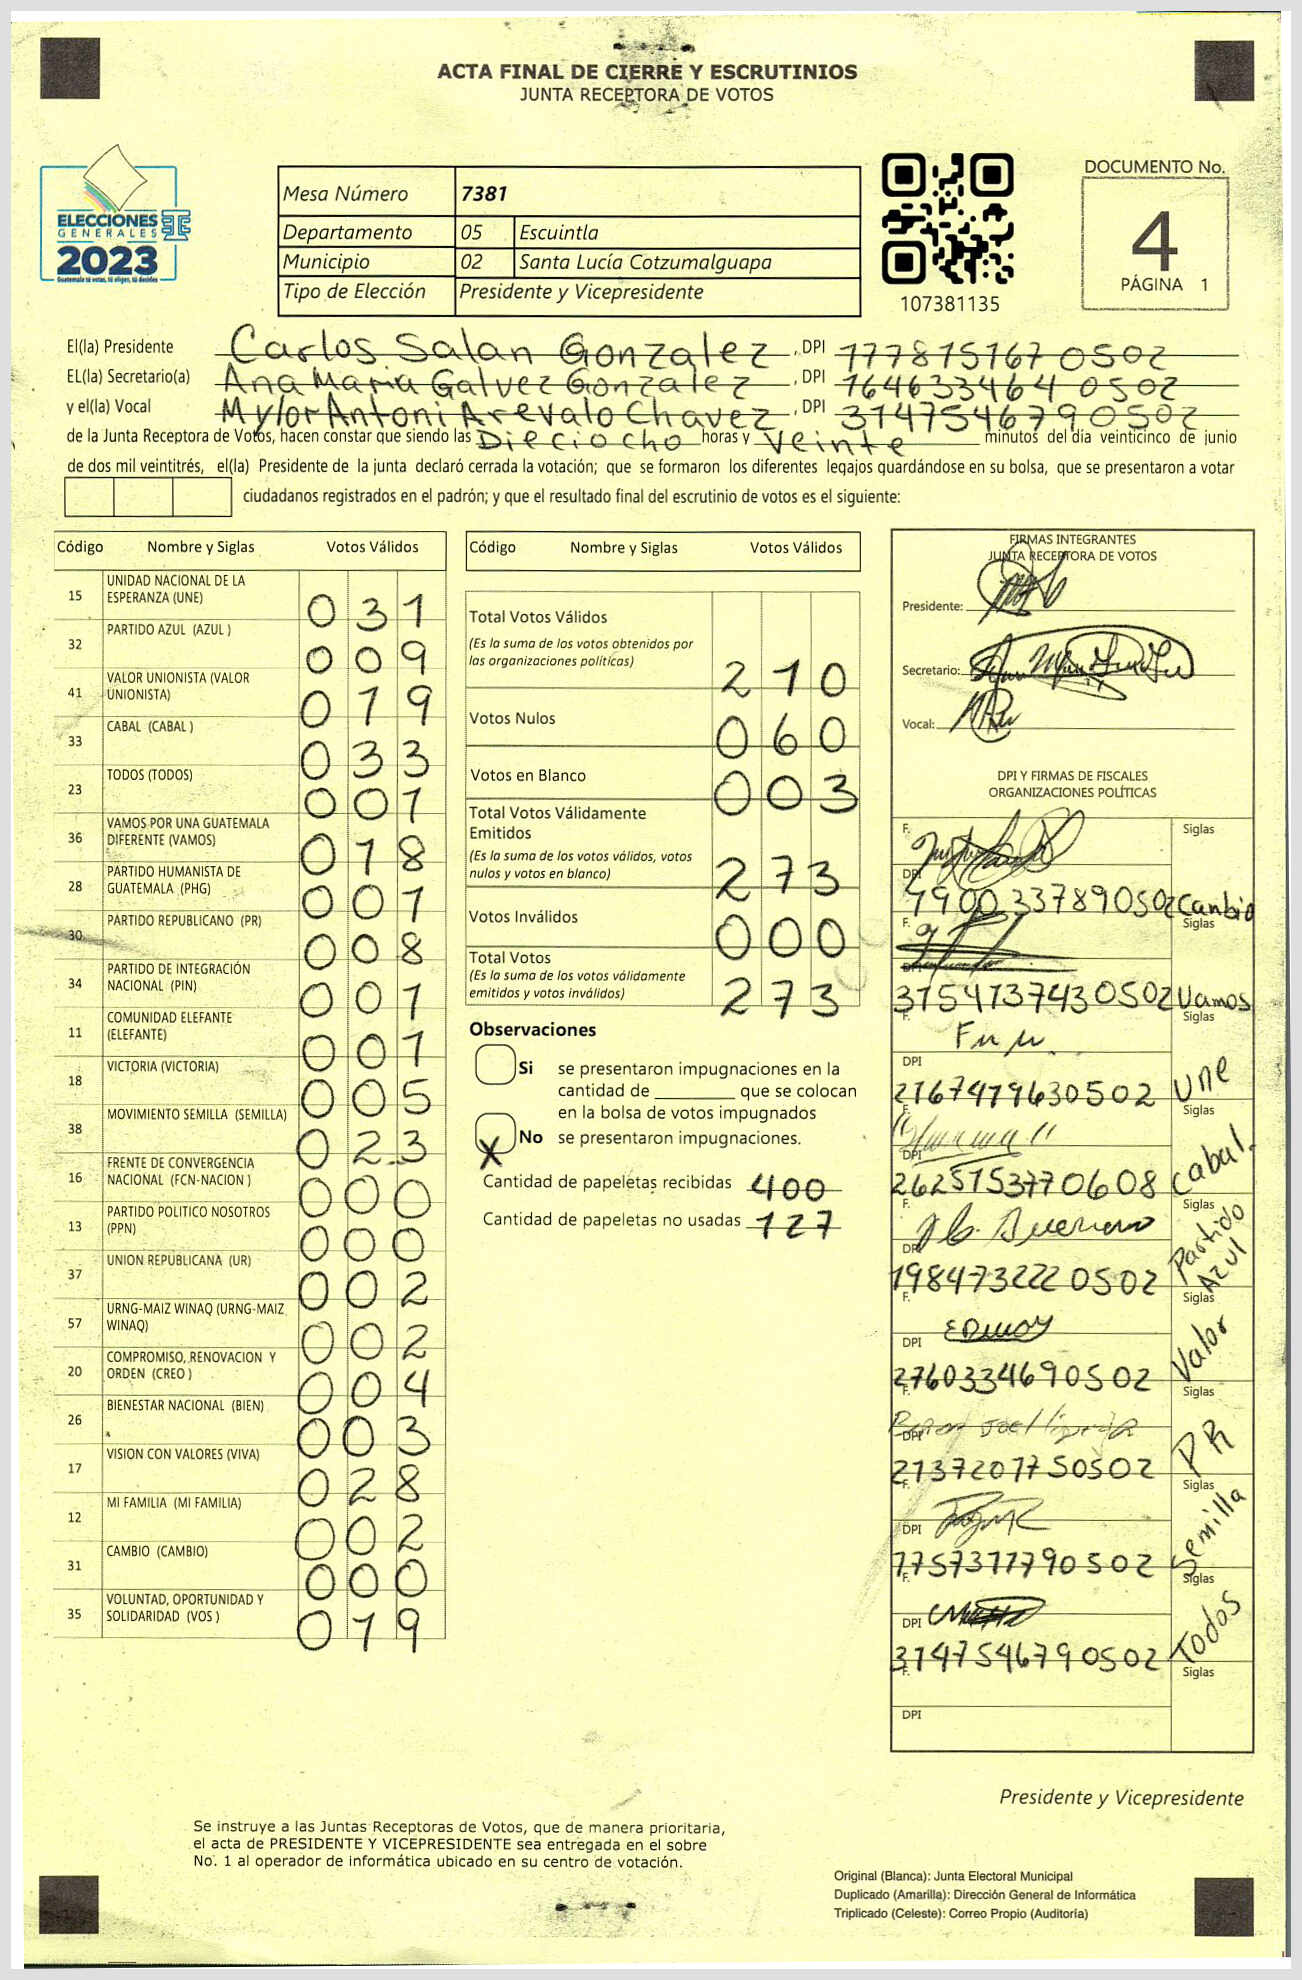 ACTA FINAL DE CIERRE Y ESCRUTINIOS
JUNTA RECEPTORA DE VOTOS
ELECCIONES
GENERALES
2023
Guatemala tú votas, tú eliges, tú decides
Mesa Número 7381
Departamento 05 Escuintla
Municipio 02 Santa Lucía Cotzumalguapa
Tipo de Elección Presidente y Vicepresidente
107381135
DOCUMENTO No.
4
PÁGINA 1
El(la) Presidente Carlos Salan Gonzalez , DPI 1778151670502
EL(la) Secretario(a) Ana Maria Galvez Gonzalez , DPI 1646334640502
y el(la) Vocal Mylor Antoni Arevalo Chavez , DPI 3147546790502
de la Junta Receptora de Votos, hacen constar que siendo las Dieciocho horas y veinte minutos del día veinticinco de junio
de dos mil veintitrés, el(la) Presidente de la junta declaró cerrada la votación; que se formaron los diferentes legajos quardándose en su bolsa, que se presentaron a votar
ciudadanos registrados en el padrón; y que el resultado final del escrutinio de votos es el siguiente:
Código Nombre y Siglas Votos Válidos
15 UNIDAD NACIONAL DE LA
ESPERANZA (UNE) 031
32 PARTIDO AZUL (AZUL ) 009
41 VALOR UNIONISTA (VALOR
UNIONISTA) 019
33 CABAL (CABAL ) 033
23 TODOS (TODOS) 001
36 VAMOS POR UNA GUATEMALA
DIFERENTE (VAMOS) 018
28 PARTIDO HUMANISTA DE
GUATEMALA (PHG) 001
30 PARTIDO REPUBLICANO (PR) 008
34 PARTIDO DE INTEGRACIÓN
NACIONAL (PIN) 001
11 COMUNIDAD ELEFANTE
(ELEFANTE) 001
18 VICTORIA (VICTORIA) 005
38 MOVIMIENTO SEMILLA (SEMILLA) 023
16 FRENTE DE CONVERGENCIA
NACIONAL (FCN-NACION ) 000
13 PARTIDO POLITICO NOSOTROS
(PPN) 000
37 UNION REPUBLICANA (UR) 002
57 URNG-MAIZ WINAQ (URNG-MAIZ
WINAQ) 002
20 COMPROMISO, RENOVACION Y
ORDEN (CREO ) 004
26 BIENESTAR NACIONAL (BIEN) 003
17 VISION CON VALORES (VIVA) 028
12 MI FAMILIA (MI FAMILIA) 002
31 CAMBIO (CAMBIO) 000
35 VOLUNTAD, OPORTUNIDAD Y
SOLIDARIDAD (VOS ) 019
Código Nombre y Siglas Votos Válidos
Total Votos Válidos
(Es la suma de los votos obtenidos por
las organizaciones políticas) 210
Votos Nulos 060
Votos en Blanco 003
Total Votos Válidamente
Emitidos
(Es la suma de los votos válidos, votos
nulos y votos en blanco) 273
Votos Inválidos 000
Total Votos
(Es la suma de los votos válidamente
emitidos y votos inválidos) 273
Observaciones
Si se presentaron impugnaciones en la
cantidad de ________ que se colocan
en la bolsa de votos impugnados
X No se presentaron impugnaciones.
Cantidad de papeletas recibidas 400
Cantidad de papeletas no usadas 127
FIRMAS INTEGRANTES
JUNTA RECEPTORA DE VOTOS
Presidente:
Secretario:
Vocal:
DPI Y FIRMAS DE FISCALES
ORGANIZACIONES POLÍTICAS
F. Siglas
DPI 1900337890502 Cambio
F. Siglas
DPI 3154137430502 Vamos
F. Siglas
DPI 2167419630502 Une
F. Siglas
DPI 2625153770608 Cabal.
F. Siglas
DPI 1984732220502 Partido Azul
F. Siglas
DPI 2760334690502 Valor
F. Siglas
DPI 2137207750502 PR
F. Siglas
DPI 1757311790502 Semilla
F. Siglas
DPI 3147546790502 Todos
F. Siglas
DPI
Presidente y Vicepresidente
Se instruye a las Juntas Receptoras de Votos, que de manera prioritaria,
el acta de PRESIDENTE Y VICEPRESIDENTE sea entregada en el sobre
No. 1 al operador de informática ubicado en su centro de votación.
Original (Blanca): Junta Electoral Municipal
Duplicado (Amarilla): Dirección General de Informática
Triplicado (Celeste): Correo Propio (Auditoría)